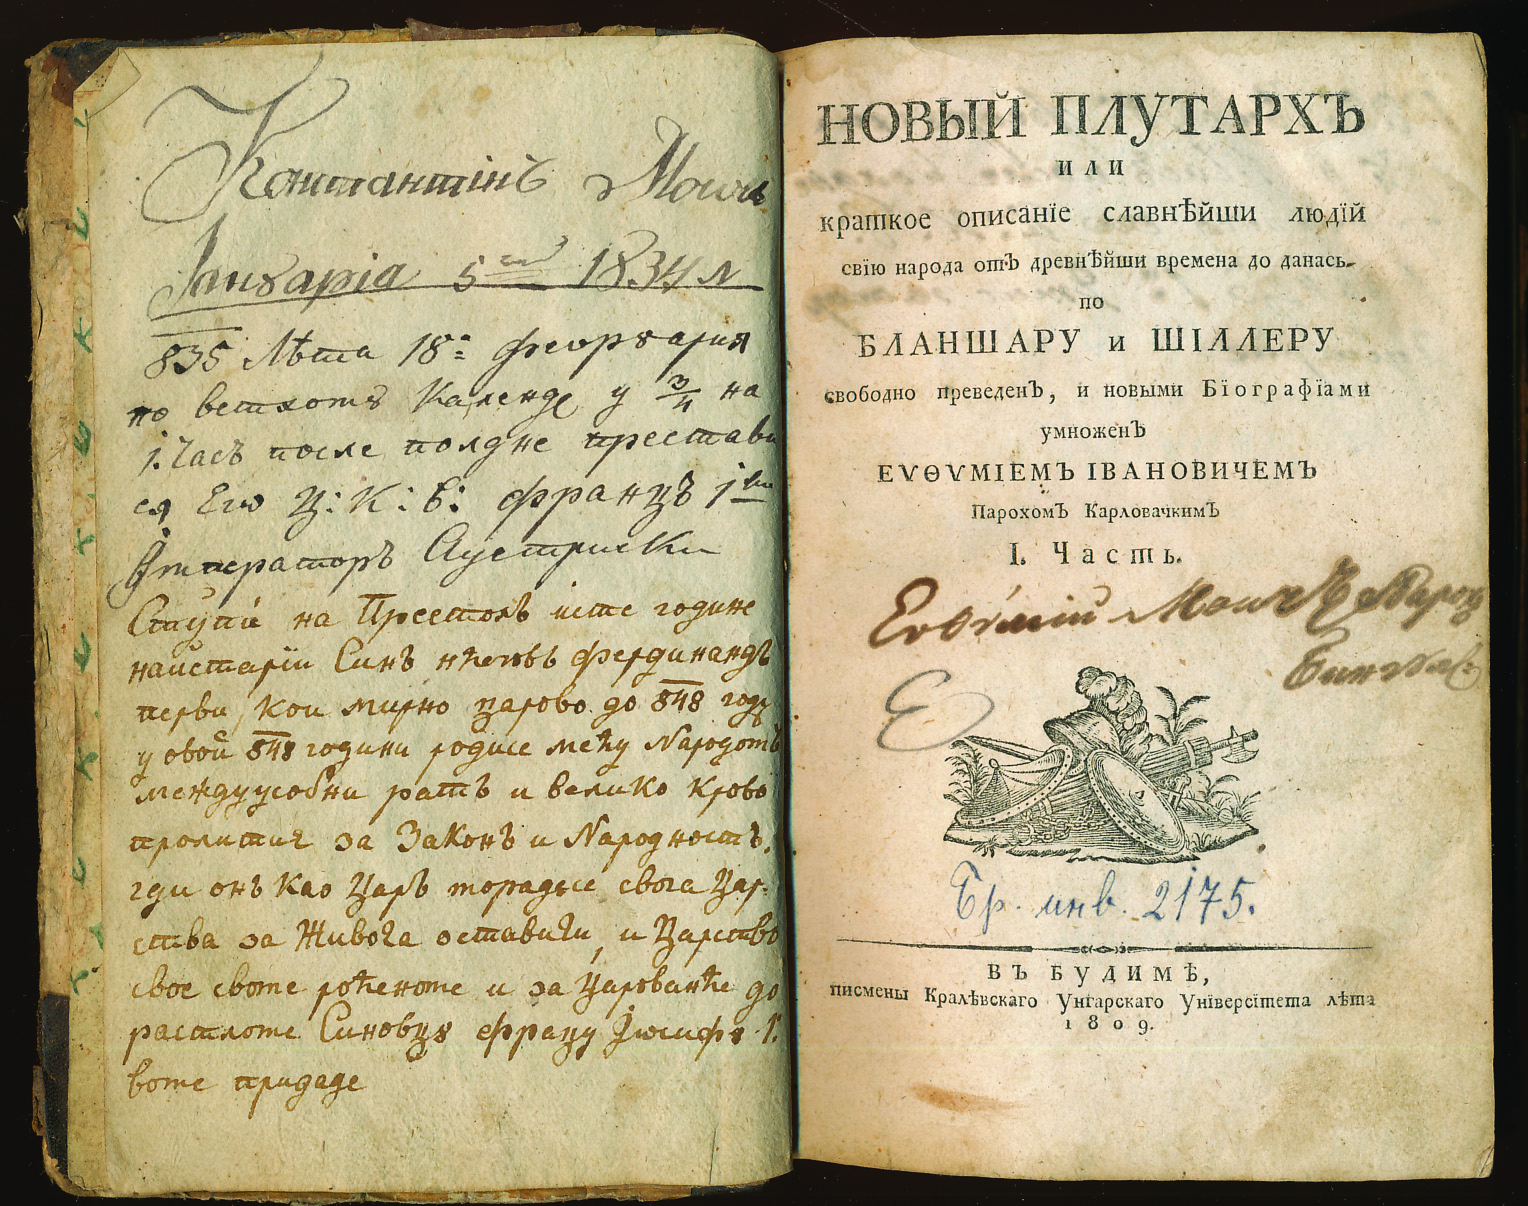 Константінъ Моичъ
Јануаріа 5 1834 л
835 Лѣта 18 Февруариа
по ветхому Календ у 3/4 на
1. Часъ после полдне престави
ся Его Ц: К: В: Францъ 1
Императоръ Аустриски
Ступи на Престолъ исте године
наистаріи Синъ нѣговъ Фердинандъ
перви, кои мирно царово до 848 год
у овой 848 години родисе међу Народомъ
междуусобни ратъ и велико крово
пролитие за Законъ и Народность,
гди онъ као Царъ морадесе свога Цар-
ства за Живота оставити, и Царство
свое своме рођеноме и за Царованѣ до
растломе Синовцу Францу Јосифу 1.
воме придаде
НОВЫЙ ПЛУТАРХЪ
ИЛИ
краткое описанїе славнѢйши людїй
свїю народа отъ древнѢйши времена до данасъ.
по
БЛАНШАРУ и ШІЛЛЕРУ
свободно преведенЪ, и новыми Бїографїами
умноженЪ
ЕѴѲѴМІЕМЪ ІВАНОВИЧЕМЪ
ПарохомЪ КарловачкимЪ
I. Часть.
Евѳимій Моичъ Парох
Е
Бр. инв. 2175.
ВЪ БУДИМѢ,
писмены Кралѣвскаго Унгарскаго Унїверсїтета лѣта
1809.